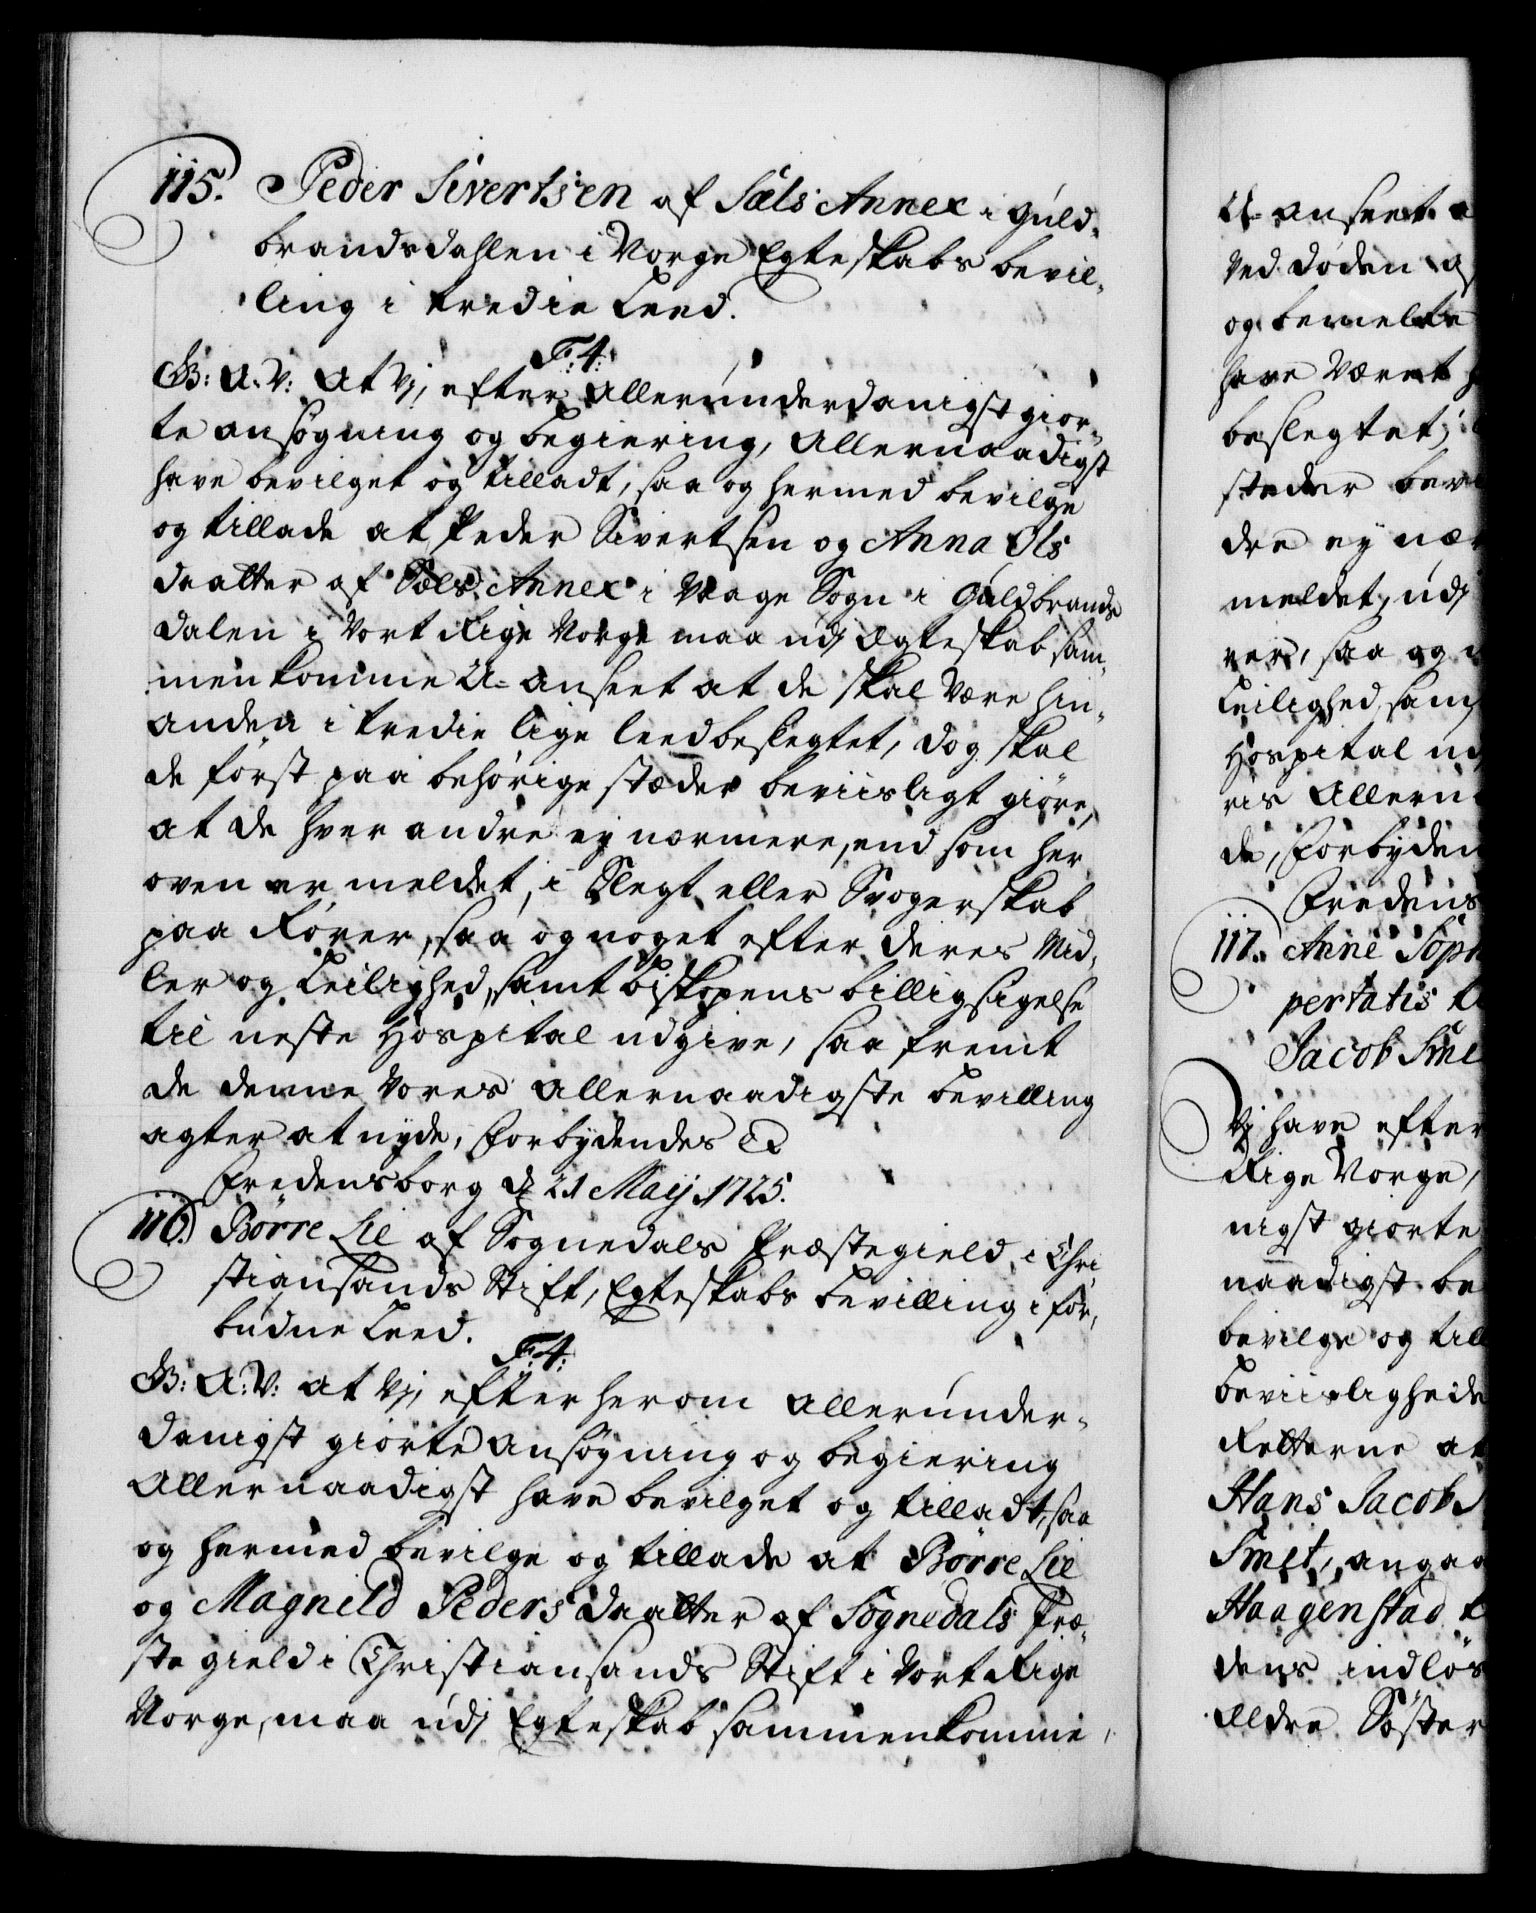 115. Peder Sivertsen af Sæls Annex i Guld-
brandsdahlen i Norge Egteskabs bevil-
ling i tredie Leed.
F: 4:
G: A: V: At Vj, efter allerunderdanigst gior-
te ansøgning og begiering, allernaadigst
have bevilget og tilladt, saa og hermed bevilge
og tillade at Peder Sivertsen og Anna Ols
daatter af Sæls Annex i Waage Sogn i Guldbrands
dalen i Vort Rige Norge maa udj Egteskab sam-
menkomme U-anseet at de skal være hin-
anden i tredie lige leed beslegtet, dog skal
de først paa behørige stæder beviisligt giøre,
at de hver andre ey nærmere, end som her
oven er meldet, i Slegt eller Svogerskab
paa Rører, saa og noget efter deres Mid-
ler og Leilighed, samt Biskopens billigsigelse
til neste Hospital udgive, saa fremt
de denne Vores allernaadigste bevilling
agter at nyde, Forbydendes &
Fredensborg d 21 Maij 1725.
116. Børre Lie af Sognedals Præstegield i Chri-
stiansands Stift, Egteskabs bevilling i for-
budne Leed.
F: 4:
G: A: V: at Vj, efter herom allerunder-
danigst giorte ansøgning og begiering
allernaadigst have bevilget og tilladt, saa
og hermed bevilge og tillade at Børre Lie
og Magnild Pedersdaatter af Sognedals Præ-
stegield i Christiansands Stift i Vort Rige
Norge, maa udj Egteskab sammenkomme,
U-anseet
ved døden
og bemelte
have været
beslegtet,
steder
dre ey
meldet, udj
rer, saa og
Leilighed, samt
Hospital
ris
de, Forbyden
Fredens
117. Anne Soph
pertatis
Jacob Sme
Vj have efter
Rige Norge,
nigst giorte
naadigst be
bevilge og till
beviislighed
Retterne at
Hans Jacob
Smet, angaa
Haagenstad
dens indløs
Eldre Søster